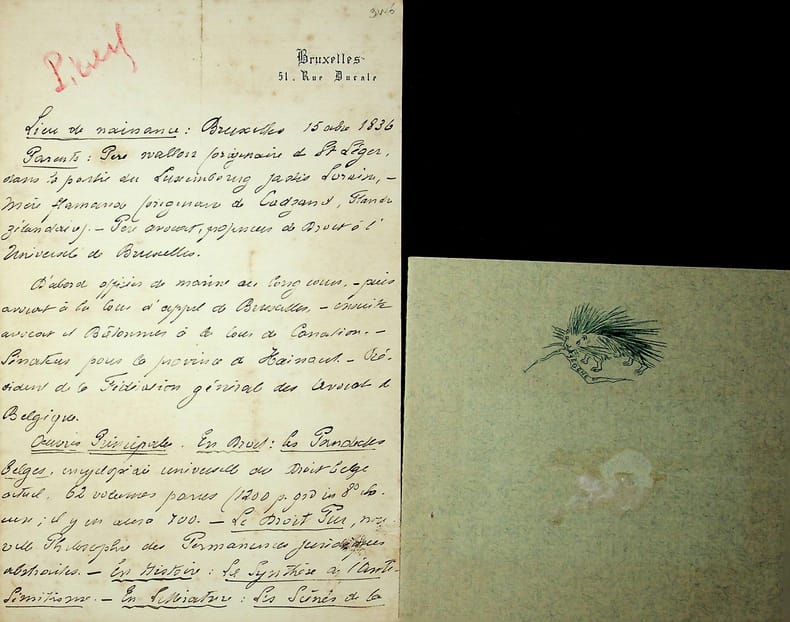 346
Picard
Bruxelles
51, Rue Ducale
Lieu de naissance : Bruxelles 15 1836
Parents : Père wallon (originaire de St Léger,
dans la partie du Luxembourg jadis Lorain, –
Mère flamande (originaire de Cadzand, Flandre
zélandaise). – Père avocat, professeur de Droit à l'
Université de Bruxelles.
D'abord officier de marine au long cours, – puis
avocat à la Cour d'appel de Bruxelles, – ensuite
avocat et Bâtonnier à la Cour de Cassation. –
Sénateur pour la province de Hainaut. – Pré-
sident de la Fédération générale des Avocats de
Belgique.
Œuvres Principales. En Droit : les Pandectes
Belges, encyclopédie universelle du Droit belge
actuel. 62 volumes parus (1200 p. grd in 8° cha-
cun ; il y en aura 100. – Le Droit Pur, nou-
velle Philosophie des Permanences juridiques
abstraites. – En Histoire : La Synthèse de l'Anti-
Sémitisme. – En Littérature : Les Scènes de la